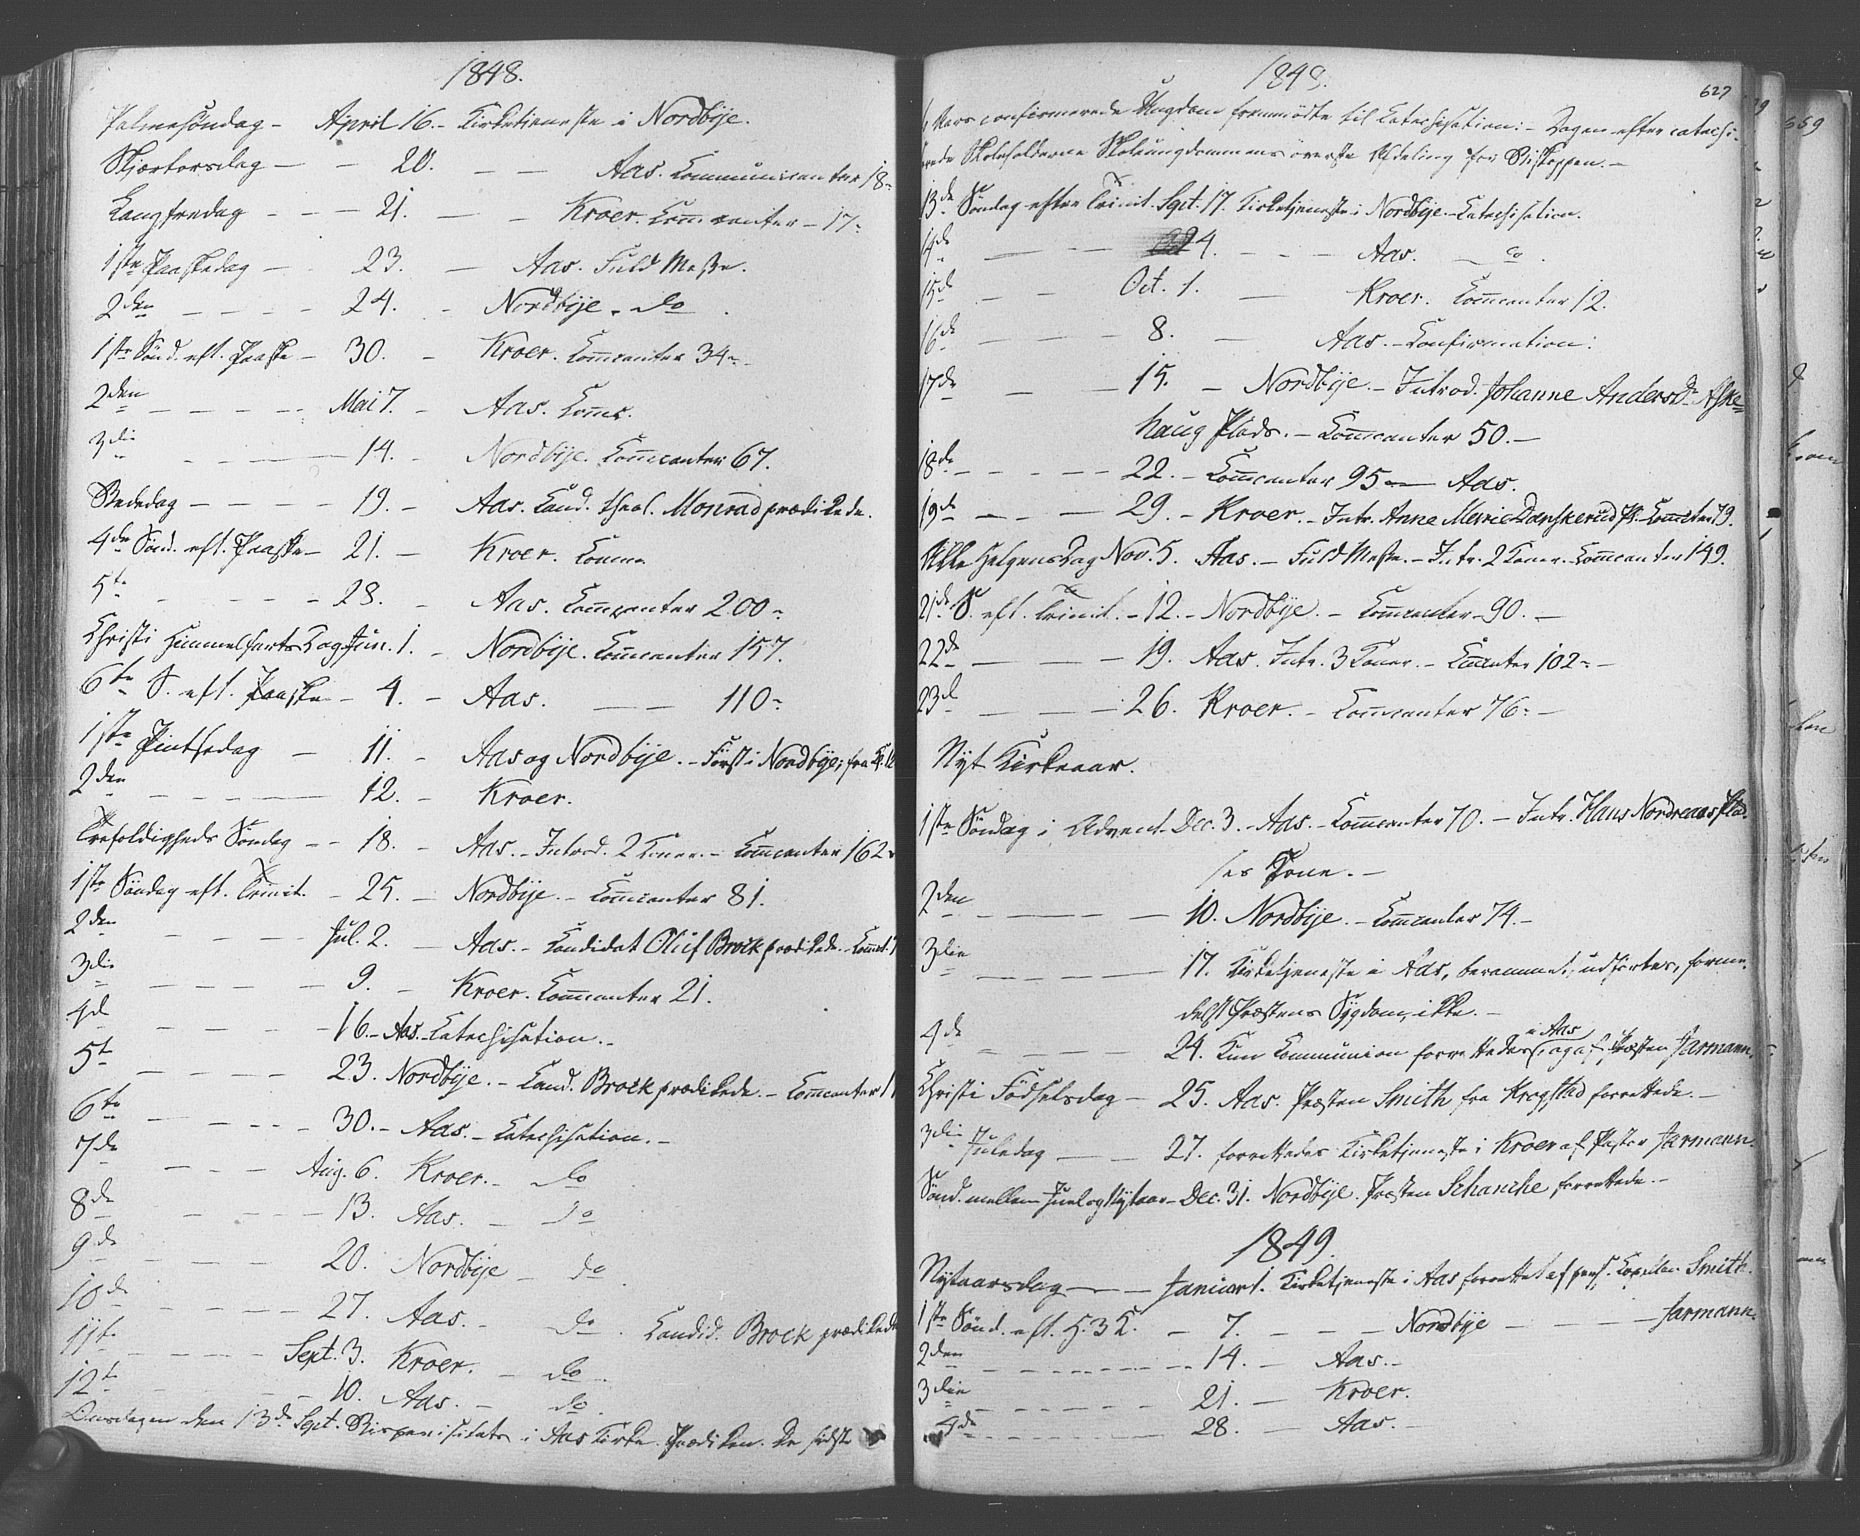 1848.
Palmesöndag – April 16. – Kirketieneste i Nordbÿe.
Skjærtorsdag – – 20. – – Aas. Communicanter 18
Langfredag – – – 21. – – Kroer. Com̄canter – 17
1ste Paaskedag – – 23. – Aas. Fuld Messe.
2den – – – – 24. – Nordbÿe. do
1ste Sönd. eft. Paaske – 30. – Kroer. Com̄canter 34
2den – – – – Mai 7. – Aas. Com̄s.
3die – – – 14. – Nordbÿe. Com̄canter 67.
Bededag – – – – 19. – Aas. Cand. theol. Monrad prædikede.
4de Sönd. eft. Paaske – 21. – Kroer. Com̄n
5te – – – – 28. – Aas. Com̄canter 200
Christi Himmelfarts Dag Jun. 1. – Nordbÿe. Com̄canter 157.
6te S. eft. Paaske – 4. – Aas. – – 110
1ste Pintsedag – 11. – Aas og Nordbÿe. – Först i Nordbÿe; fra Kl.
2den – – – – 12. – Kroer.
Trefoldigheds Söndag – – 18. – Aas. – Introd. 2 Koner. – Com̄canter 162
1ste Söndag eft. Trinit. – 25. – Nordbÿe. – Com̄canter 81.
2den – – – – Jul. 2. – Aas. – Candidat Oluf Brock prædikede. Com̄ct.
3die – – – 9. – Kroer. Com̄canter 21.
4de – – – – 16. – Aas. – Catechisation. –
5te – – – – 23. Nordbÿe. – Cand. Brock prædikede. – Com̄canter
6te – – – – 30. – Aas. – Catechisation. –
7de – – – Aug. 6. Kroer. – do
8de – – – – 13. Aas. – do
9de – – – – 20. Nordbÿe – do
10de – – – – 27. Aas. – do. Candid. Brock prædikede
11te – – – – Sept. 3. Kroer. – do
12te – – – – 10. Aas. – do.
Onsdagen den 13de Sept. Bispevisitats i Aas Kirke. Prædiken. De sidste
1848.
627
Aars confirmerede Ungdom fremmödte til Catechisation: – Dagen efter catechi-
serede Skoleholderne Skoleungdommens överste Afdeling for Biskoppen. –
13de Söndag efter Trinit. Sept. 17. Kirketjeneste i Nordbÿe. – Catechisation.
14de – – – 24. – – – Aas. – do.
15de – – Oct. 1. – Kroer. Com̄canter 12.
16de – – – 8. – Aas. – Confirmation:
17de – – 15. – Nordbÿe. – Introd. Johanne Andersdr Aske-
haug Plads. – Com̄canter 50. –
18de – – – – 22. – Com̄canter 95 – Aas.
19de – – – 29. – Kroer. – Intr. Anne Marie Danskerud Pl. – Com̄cter 79.
Alle Helgens Dag Nov. 5. Aas. – Fuld Messe. – Intr. 2 Koner. Com̄canter 149.
21de S. eft. Trinit. – 12. – Nordbÿe. – Com̄canter – 90. –
22de – – – 19. Aas. Intr. 3 Koner. – Com̄anter 102 –
23de – – – 26. Kroer. – Com̄canter 76 –
Nyt Kirkeaar.
1ste Söndag i Advent. Dec. 3. – Aas. – Com̄canter 70. – Intr. Hans Nordreaas Plad-
ses Kone. –
2den – – – – 10. Nordbÿe. – Com̄canter 74. –
3die – – – – 17. Kirketjeneste i Aas, berammet, udfördes, forme-
delst Præstens Sÿgdom, ikke. –
i Aas
4de – – – – 24. Kun Communion forrettedes, og af Præsten Jarmann.
Christi Födselsdag – 25. Aas. Præsten Smith fra Krogstad forrettede. –
3die Juledag – – 27. forrettedes Kirketjeneste i Kroer af Pastor Jarmann.
Sönd. mellem Juul og Nytaar – Dec. 31. Nordbÿe. Præsten Schanche forrettede. –
1849.
Nytaarsdag – – Januar 1. Kirketjeneste i Aas forrettet af pers. Capellan Smith.
1ste Sönd. eft. H. 3 K. – 7. – – – Nordbÿe – – – – Jarmann.
2den – – – – 14. – Aas. –
3die – – – – 21. – Kroer.
4de – – – – 28. – Aas. –
359